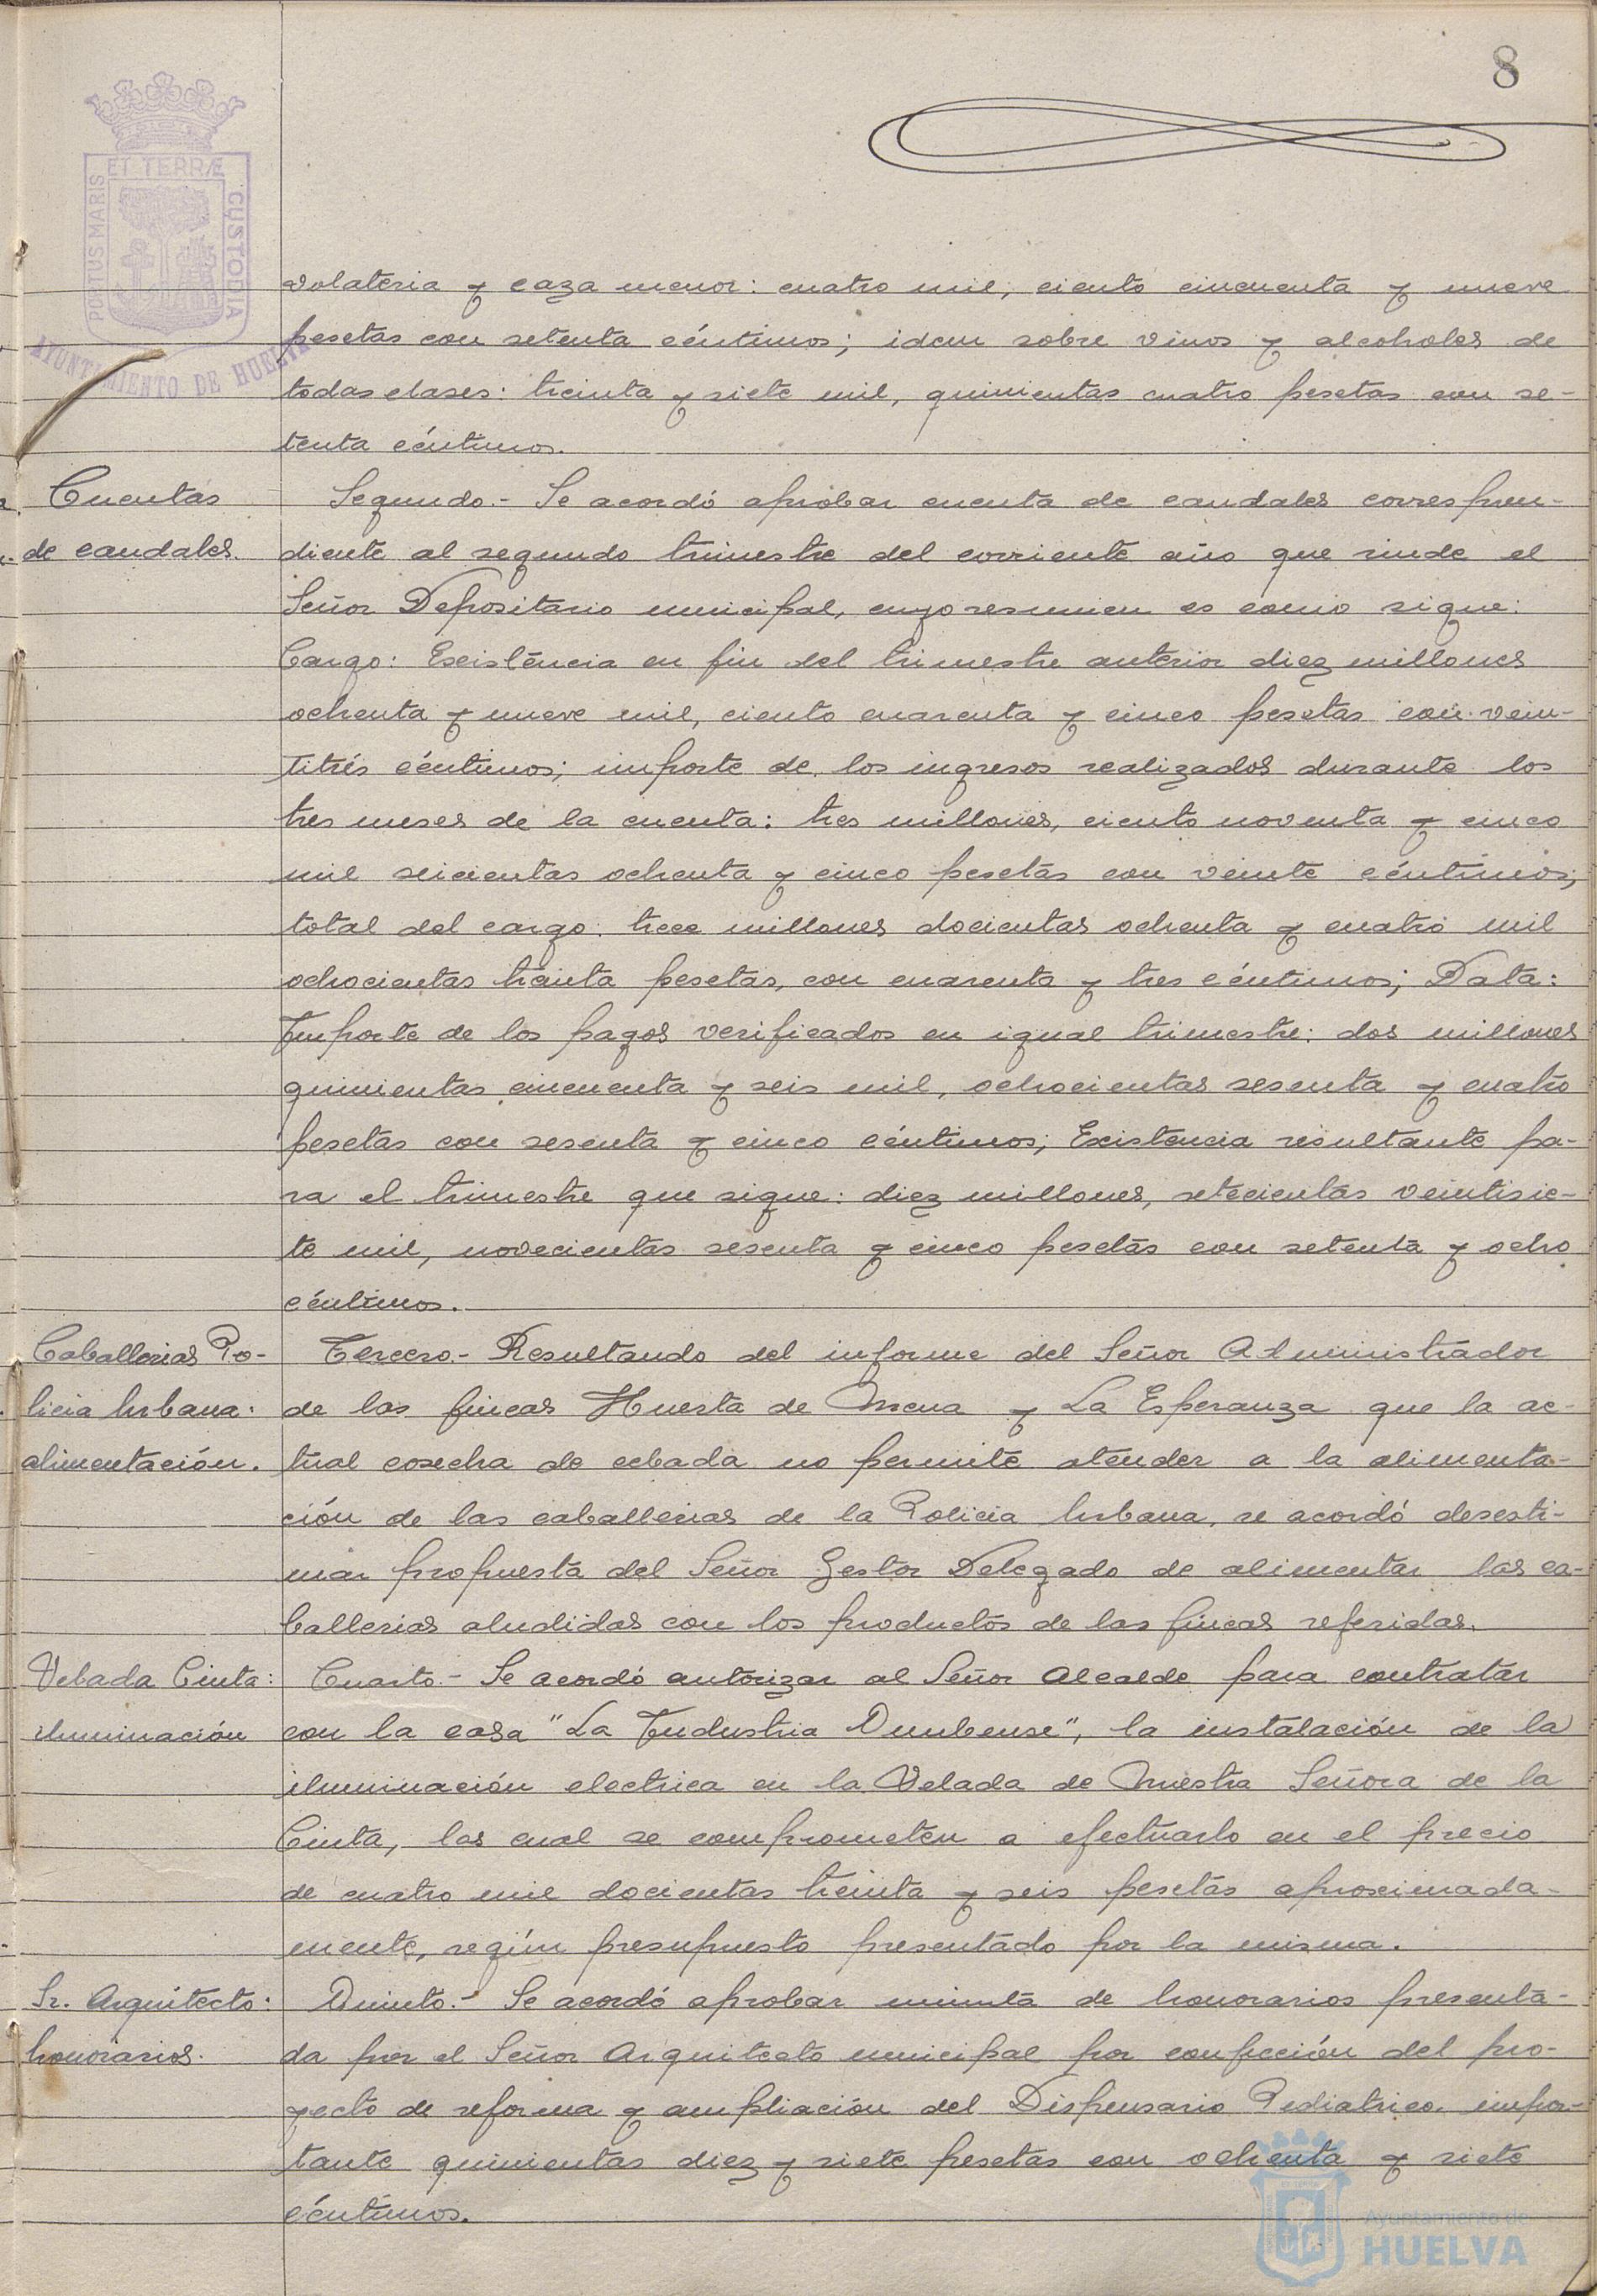 8
PORTUS MARIS ET TERRÆ CUSTODIA
AYUNTAMIENTO DE HUELVA
volateria y caza menor: cuatro mil, ciento cincuenta y nueve
pesetas con setenta céntimos; idem sobre vinos y alcoholes de
todas clases: treinta y siete mil, quinientas cuatro pesetas con se-
tenta céntimos.
Cuentas
de caudales.
Segundo.- Se acordó aprobar cuenta de caudales correspon-
diente al segundo trimestre del corriente año que rinde el
Señor Depositario municipal, cuyo resumien es como sigue:
Cargo: Existencia en fin del trimestre anterior diez millones
ochenta y nueve mil, ciento cuarenta y cinco pesetas con vein-
titrés céntimos; importe de los ingresos realizados durante los
tres meses de la cuenta: tres millones, ciento noventa y cinco
mil seicientas ochenta y cinco pesetas con veinte céntimos;
total del cargo: trece millones docientas ochenta y cuatro mil
ochocientas treinta pesetas, con cuarenta y tres céntimos; Data:
Importe de los pagos verificados en igual trimestre: dos millones
quinientas cincuenta y seis mil, ochocientas sesenta y cuatro
pesetas con sesenta y cinco céntimos; Existencia resultante pa-
ra el trimestre que sigue: diez millones, setecientas veintisie-
te mil, novecientas sesenta y cinco pesetas con setenta y ocho
céntimos.
Caballerias Po-
licia Urbana:
alimentación.
Tercero.- Resultando del informe del Señor Administrador
de las fincas Huerta de Mena y La Esperanza que la ac-
tual cosecha de cebada no permite atender a la alimenta-
ción de las caballerias de la Policia Urbana, se acordó desesti-
mar propuesta del Señor Gestor Delegado de alimentar las ca-
ballerias aludidas con los productos de las fincas referidas.
Velada Cinta:
iluminación
Cuarto.- Se acordó autorizar al Señor Alcalde para contratar
con la casa "La Industria Onubense", la instalación de la
iluminación electrica en la Velada de Nuestra Señora de la
Cinta, las cual se comprometen a efectuarlo en el precio
de cuatro mil docientas treinta y seis pesetas aproximada-
mente, según presupuesto presentado por la misma.
Sr. Arquitecto:
honorarios.
Quinto.- Se acordó aprobar minuta de honorarios presenta-
da por el Señor Arquitecto municipal por confección del pro-
yecto de reforma y ampliación del Dispensario Pediatrico, impor-
tante quinientas diez y siete pesetas con ochenta y siete
céntimos.
Ayuntamiento de
HUELVA